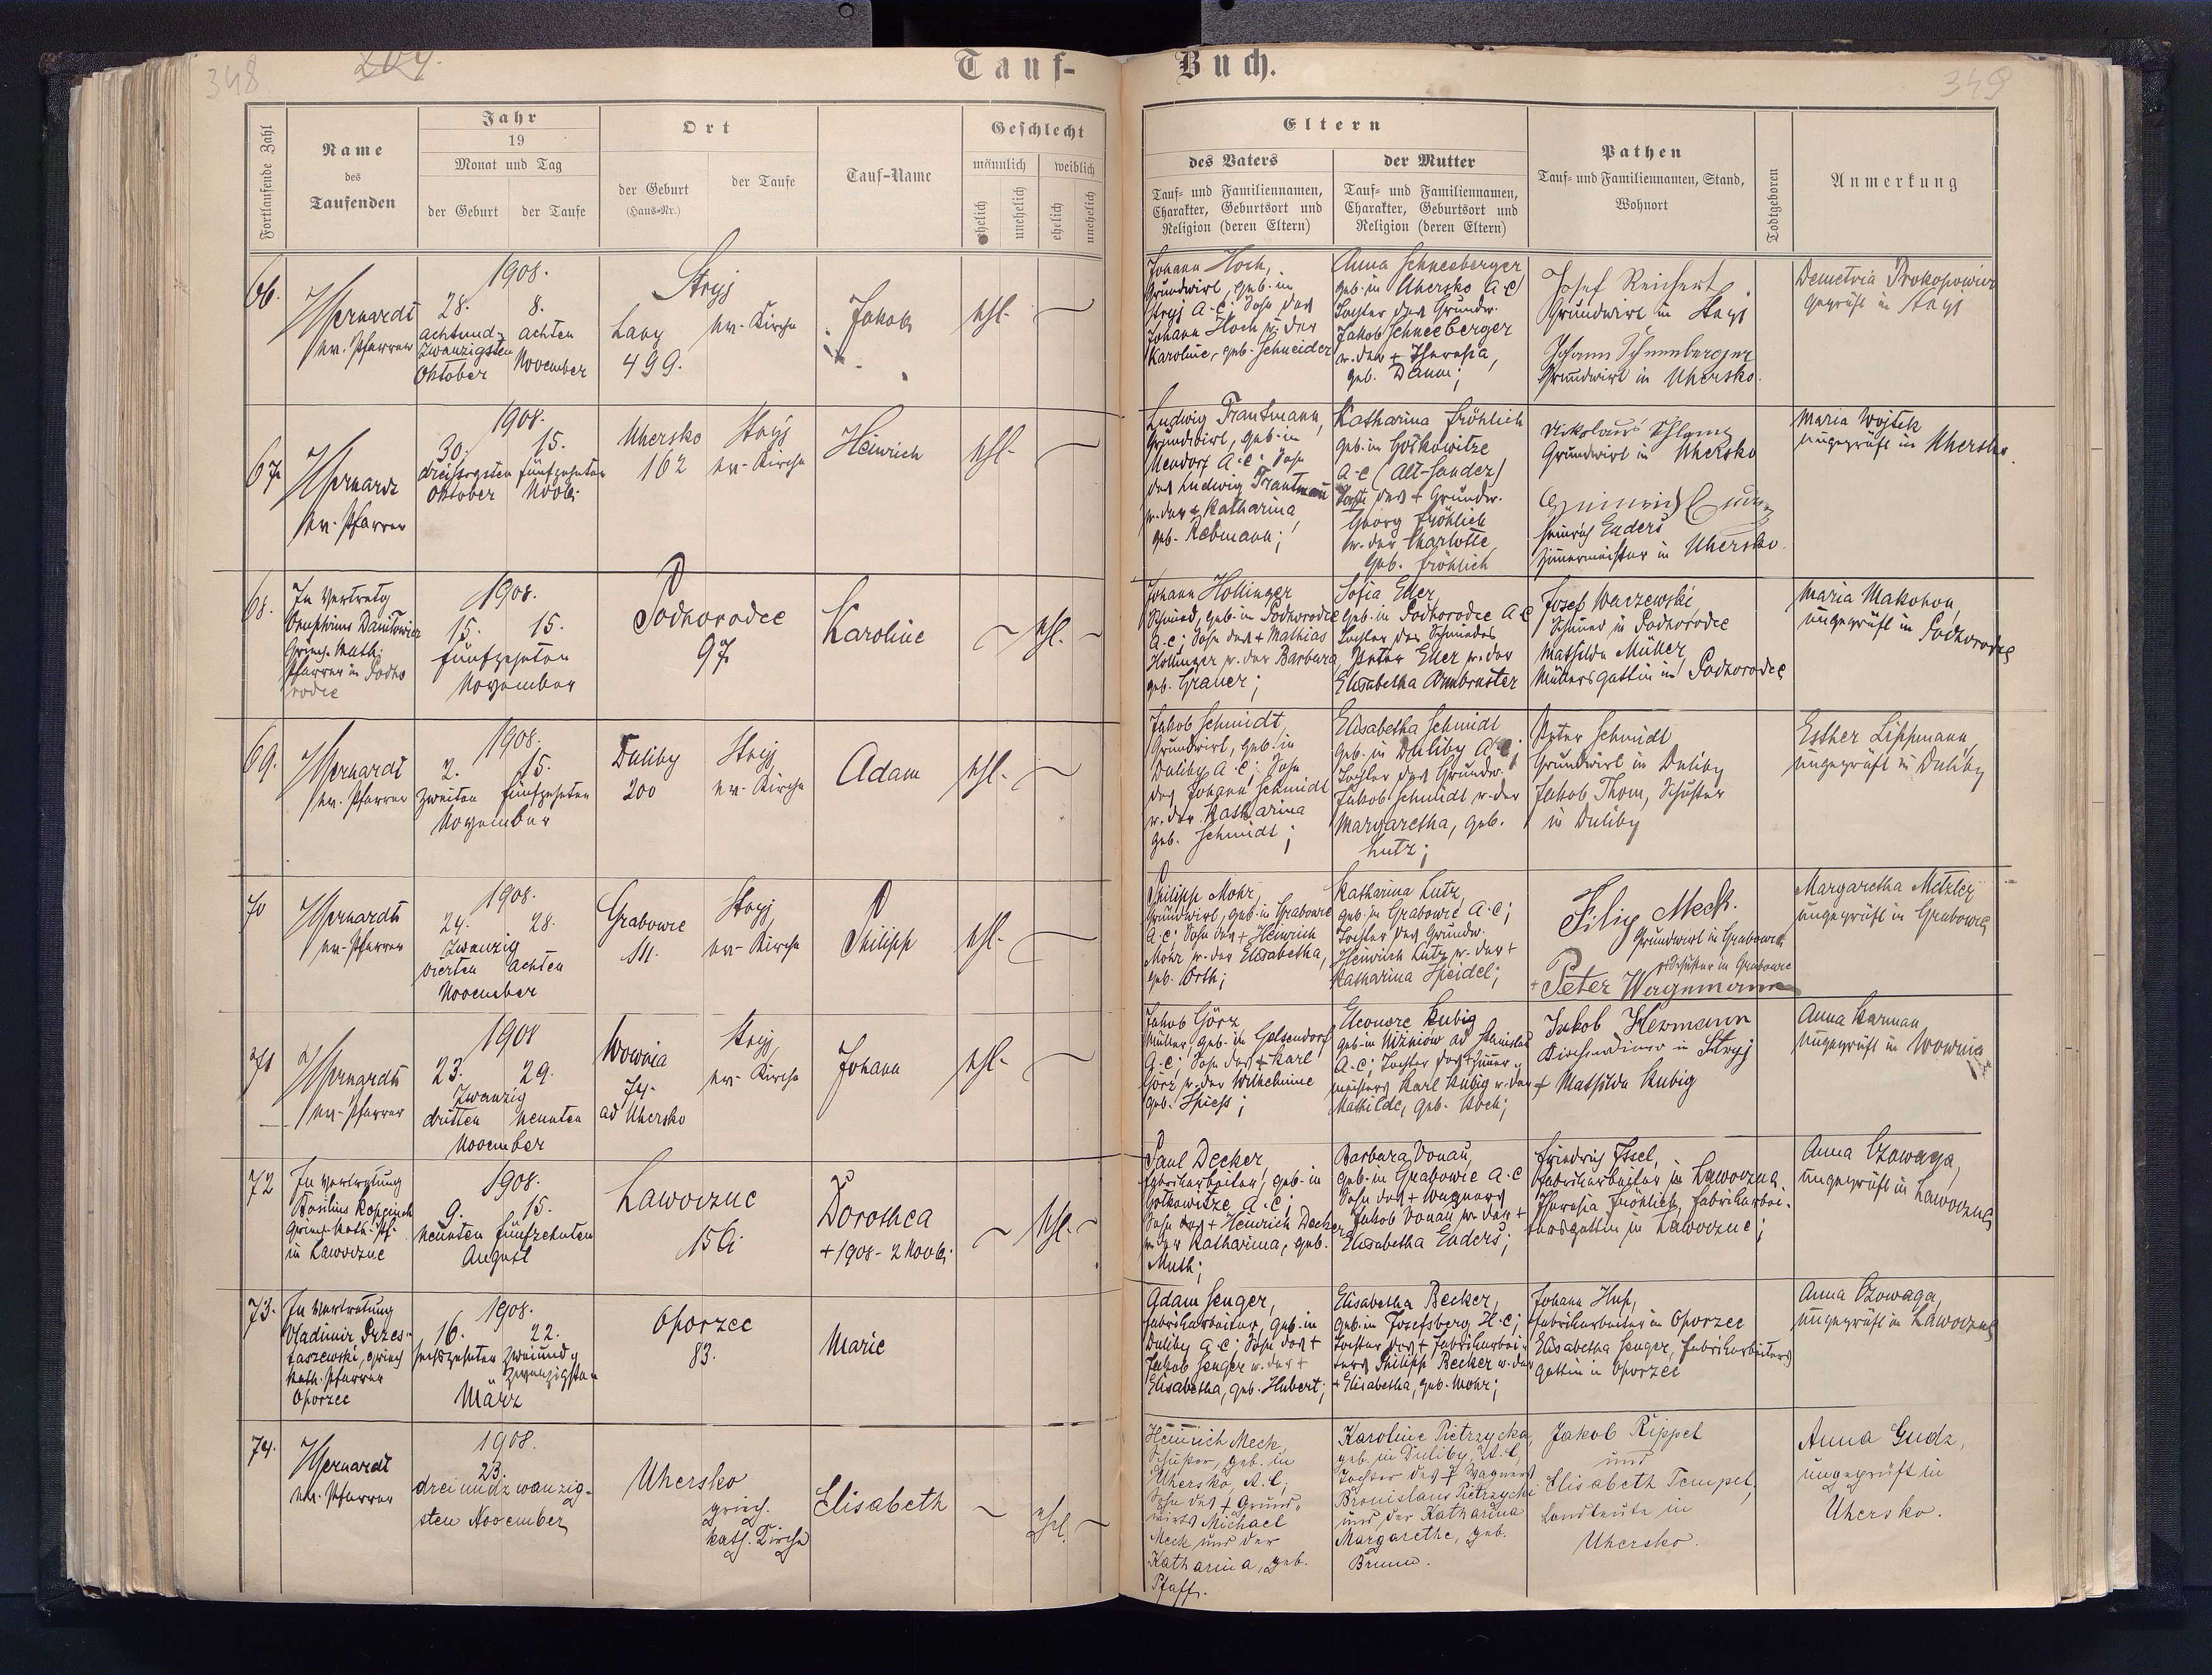 348
204.
Tauf-Buch.
349
Fortlaufende Zahl
Name
des
Taufenden
Jahr
19
Monat und Tag
der Geburt
der Taufe
Ort
der Geburt
(Haus-Nr.)
der Taufe
Tauf-Name
Geschlecht
männlich
weiblich
ehelich
unehelich
ehelich
unehelich
Eltern
des Vaters
Tauf- und Familiennamen,
Charakter, Geburtsort und
Religion (deren Eltern)
der Mutter
Tauf- und Familiennamen,
Charakter, Geburtsort und
Religion (deren Eltern)
Pathen
Tauf- und Familiennamen, Stand,
Wohnort
Todtgeboren
Anmerkung
66.
ev. Pfarrer
1908.
28. 8.
achtund- achten
zwanzigsten
Oktober November
Stryj
Lany ev. Kirche
499.
Jakob
ehl. ~
Johann Hoch,
Grundwirt, geb. in
Stryj A.C; Sohn des
Johann Hoch u. der
Karoline, geb. Schneider
Anna Schneeberger
geb. in Uhersko A C
Tochter des Grundw.
Jakob Schneeberger
u. der + Theresia,
geb. Daum;
Josef Reichert
Grundwirt in Stryj
Johann Schneeberger
Grundwirt in Uhersko.
Demetria Prokopowicz
geprüft in Stryj
67.
ev. Pfarrer
1908.
30. 15.
dreissigsten fünfzehnten
Oktober Novbr.
Uhersko Stryj
162 ev. Kirche
Heinrich
ehl. ~
Ludwig Trautmann,
Grundwirt, geb. in
Neudorf A.C; Sohn
des Ludwig Trautmann
u. der + Katharina,
geb. Rebmann;
Katharina Fröhlich
geb. in Gołkowitze
A.C (Alt-Sandez)
Tochter des + Grundw.
Georg Fröhlich
u. der Charlotte,
geb. Fröhlich
Grundwirt in Uhersko
Heinrich Enders
Zimmermeister in Uhersko.
Maria Wojtek
ungeprüft in Uhersko.
68.
In Vertretg
Griech. Kath.
Pfarrer in Podho
rodce
1908.
15. 15.
fünfzehnten
November
Podhorodce
97
Karoline
~ ehl. ~
Johann Hollinger
Schmied, geb. in Podhorodce
A.C; Sohn des + Mathias
Hollinger u. der Barbara,
geb. Grauer;
Sofia Eller,
geb. in Podhorodce A C
Tochter des Schmiedes
Peter Eller u. der
Elisabetha Armbruster
Josef Warzewski
Schmied in Podhorodce
Mathilde Müller
Müllersgattin in Podhorodce
Maria Makohon,
ungeprüft in Podhorodce
69.
ev. Pfarrer
1908.
2. 15.
zweiten fünfzehnten
November
Duliby Stryj
200 ev. Kirche
Adam
ehl. ~
Jakob Schmidt,
Grundwirt, geb. in
Duliby A C; Sohn
des Johann Schmidt
u. der Katharina
geb. Schmidt;
Elisabetha Schmidt
geb. in Duliby A C;
Tochter des Grundw.
Jakob Schmidt u. der
Margaretha, geb.
Lutz;
Peter Schmidt
Grundwirt in Duliby
Jakob Thom, Schuster
in Duliby
Esther Lippmann,
ungeprüft in Duliby
70
ev. Pfarrer
1908.
24. 28.
Zwanzig
vierten achten
November
Grabowce Stryj,
111. ev. Kirche
Philipp
ehl. ~
Philipp Mohr,
Grundwirt, geb. in Grabowce
A.C; Sohn des + Heinrich
Mohr u. der Elisabetha,
geb. Orth;
Katharina Lutz,
geb. in Grabowce A.C;
Tochter des Grundw.
Heinrich Lutz u. der +
Katharina Speidel;
Filip Meck.
Grundwirt in Grabowce
Schuster in Grabowce
+ Peter Wagemann
Margaretha Metzler
ungeprüft in Grabowce
71
ev. Pfarrer
1908
23. 29.
Zwanzig
dritten neunten
November
Wownia Stryj,
74. ev. Kirche
ad Uhersko
Johann
ehl. ~
Jakob Görz
Müller, geb. in Gelsendorf
A.C; Sohn des + Karl
Görz u. der Wilhelmine
geb. Spiess;
Eleonore Kubig
geb. in Niżniów ad Stanislau
A.C; Tochter des Zimmer-
meisters Karl Kubig u. der
Mathilde, geb. Koch;
Jakob Hermann
Kirchendiener in Stryj
+ Mathilde Kubig
Anna Harman
ungeprüft in Wownia
72
In Vertretung
Griech. Kath. Pf.
in Lawoczne
1908.
9. 15.
neunten fünfzehnten
August
Lawoczne
156
Dorothea
+ 1908 - 2 Novbr.
~ ehl. ~
Paul Decker,
Fabriksarbeiter, geb. in
Gołkowitze A.C;
Sohn des + Heinrich Decker
u. der Katharina, geb.
Muth;
Barbara Donau,
geb. in Grabowce A.C
Jakob Donau u. der +
Elisabetha Enders;
Friedrich Issel,
Fabriksarbeiter in Lawoczne
Theresia Fröhlich, Fabriksarbei-
tersgattin in Lawoczne;
Anna Ozowaga,
ungeprüft in Lawoczne
73.
In Vertretung
Vladimir Przes-
taszewski, griech
kath. Pfarrer
Oporzec
1908.
16. 22.
sechszehnten zweiund
zwanzigsten
März
Oporzec
83.
Marie
Adam Senger,
Fabriksarbeiter, geb. in
Duliby A C; Sohn des +
Jakob Senger u. der +
Elisabetha, geb. Hubert;
Elisabetha Becker,
geb. in Josefsberg H.C;
Tochter des + Fabriksarbei-
ters Philipp Becker u. der
+ Elisabetha, geb. Mohr;
Johann Hup,
Fabriksarbeiter in Oporzec
Elisabetha Senger, Fabriksarbeiters
gattin in Oporzec
Anna Ozowaga,
ungeprüft in Lawoczne
74.
ev. Pfarrer
1908.
23.
dreiundzwanzig-
sten November
Uhersko
griech.
kath. Kirche
Elisabeth
~ ehl. ~
Heinrich Meck,
Schuster, geb. in
Uhersko, A.C;
Sohn des + Grund-
wirts Michael
Meck und der
Katharina, geb.
Pfaff.
Karoline Pietrzycka,
geb. in Duliby, A.C,
Tochter des + Wagners
Bronislaus Pietrzycki
und der Katharina
Margarethe, geb.
Brunn.
Jakob Rippel
und
Elisabeth Tempel,
Landleute in
Uhersko.
Anna Gudz,
ungeprüft in
Uhersko.